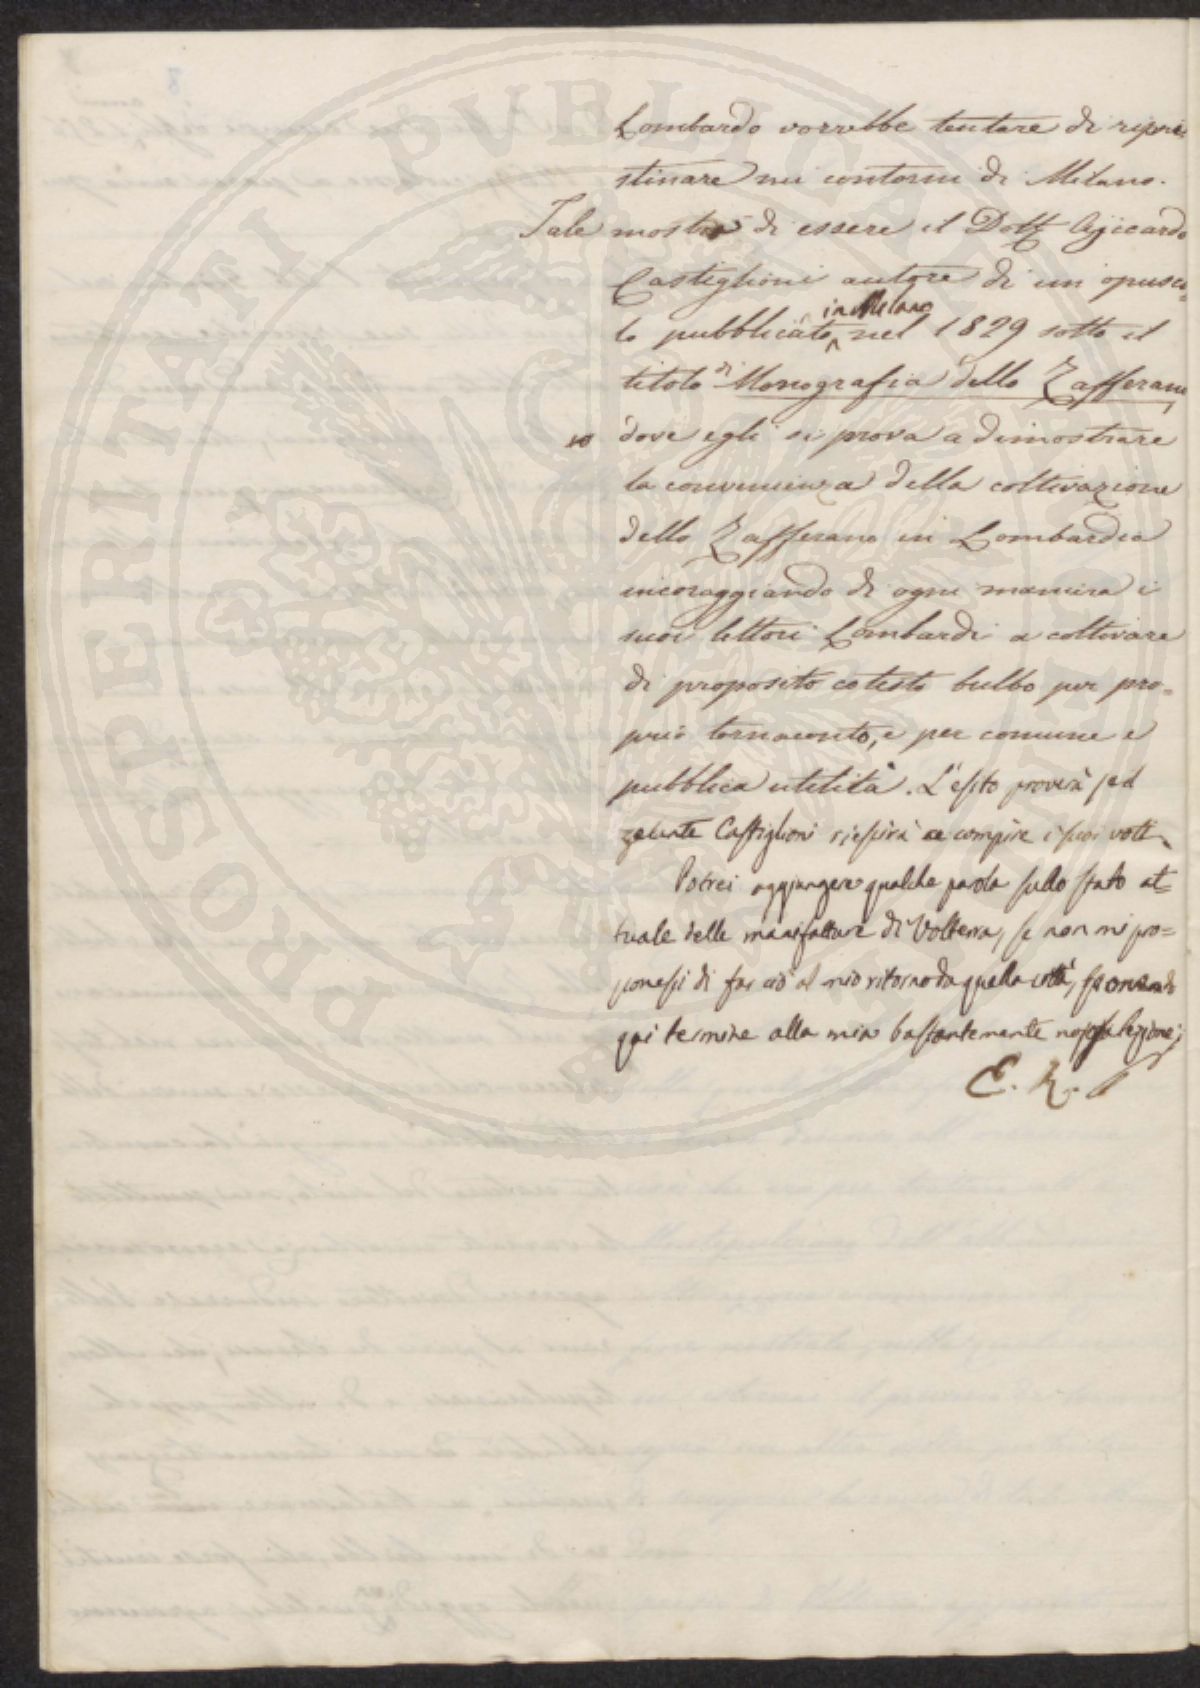 Lombardo vorrebbe tentare di ripri-
stinare nei contorni di Milano.
Tale mostra di essere il Dott Ajicardo
Castiglioni autore di un opusco-
in Milano
lo pubblicato nel 1829 sotto il
titolo di Monografia dello Zafferano
dove egli si prova a dimostrare
la convenienza della coltivazione
dello Zafferano in Lombardia
incoraggiando di ogni maniera i
suoi lettori Lombardi a coltivare
di proposito cotesto bulbo per pro-
prio tornaconto, e per comune e
pubblica utilità. L'esito proverà se il
zelante Castiglioni riescirà a compire i suoi voti.
Potrei aggiungere qualche parola sullo stato at-
tuale delle manifatture di Volterra, se non mi pro-
ponessi di far ciò al mio ritorno da quella città,
qui termine alla mia bastantemente nojosa lezione;
E. R.
PROSPERITATI PVBLICAE